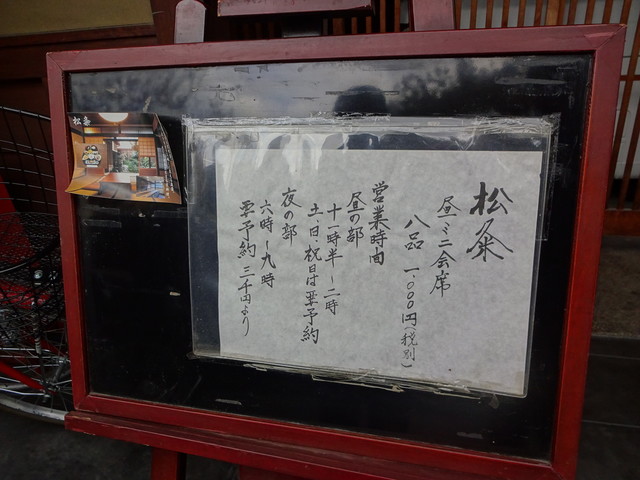 松粂
昼ミニ会席
八品 一、〇〇〇円(税別)
営業時間
昼の部
十一時半~二時
土、日、祝日は要予約
夜の部
六時~九時
要予約 三千円より
松粂